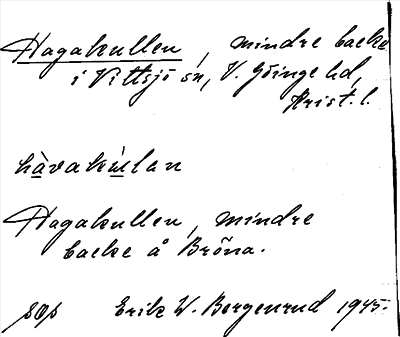 Hagakullen, mindre backe
i Vittsjö sn, V. Göinge hd,
Krist. l.
hàvakùlan
Hagakullen, mindre
backe å Bröna.
Erik W. Bergenrud 1945.